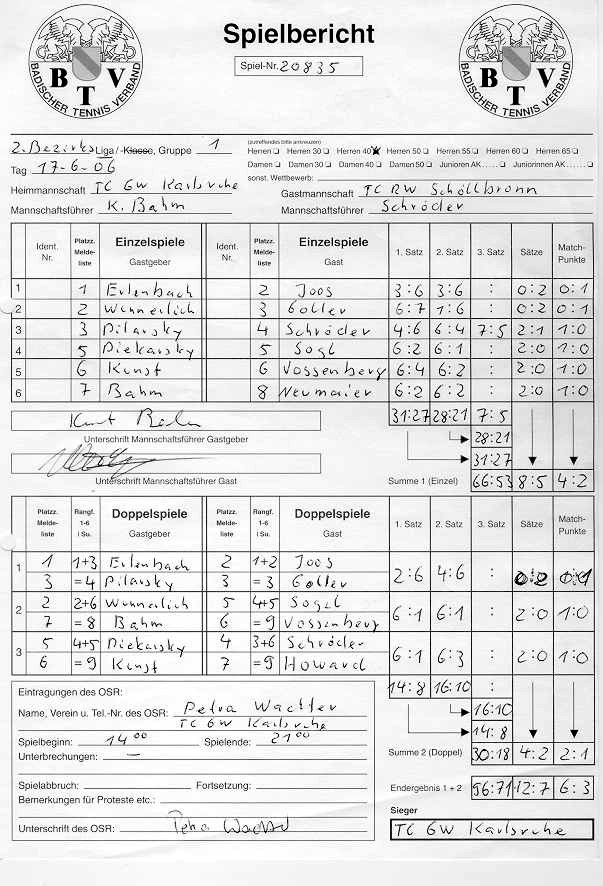 Spielbericht
Spiel-Nr. 20835
BADISCHER TENNIS VERBAND
BTV
BADISCHER TENNIS VERBAND
BTV
(zutreffendes bitte ankreuzen)
2. Bezirks Liga/-Klasse, Gruppe 1
Herren Herren 30 Herren 40 Herren 50 Herren 55 Herren 60 Herren 65
Tag 17-6-06
Damen Damen 30 Damen 40 Damen 50 Junioren AK..... Juniorinnen AK.....
sonst. Wettbewerb:
Heimmannschaft TC GW Karlsruhe
Gastmannschaft TC RW Schöllbronn
Mannschaftsführer K. Bahm
Mannschaftsführer Schröder
Ident. Nr. Platzz. Meldeliste Einzelspiele Gastgeber Ident. Nr. Platzz. Meldeliste Einzelspiele Gast 1. Satz 2. Satz 3. Satz Sätze Match-Punkte
1 1 Erlenbach 2 Joos 3:6 3:6 : 0:2 0:1
2 2 Wunnerlich 3 Goller 6:7 1:6 : 0:2 0:1
3 3 Pilarsky 4 Schröder 4:6 6:4 7:5 2:1 1:0
4 5 Piekarsky 5 Sogl 6:2 6:1 : 2:0 1:0
5 6 Kunst 6 Vossenberg 6:4 6:2 : 2:0 1:0
6 7 Bahm 8 Neumaier 6:2 6:2 : 2:0 1:0
31:27 28:21 7:5
Unterschrift Mannschaftsführer Gastgeber
28:21
31:27
Unterschrift Mannschaftsführer Gast
Summe 1 (Einzel) 66:53 8:5 4:2
Platzz. Meldeliste Rangf. 1-6 i Su. Doppelspiele Gastgeber Platzz. Meldeliste Rangf. 1-6 i Su. Doppelspiele Gast 1. Satz 2. Satz 3. Satz Sätze Match-Punkte
1 1 1+3 Erlenbach 2 1+2 Joos 2:6 4:6 : 0:2 0:1
3 =4 Pilarsky 3 =3 Goller
2 2 2+6 Wunnerlich 5 4+5 Sogl 6:1 6:1 : 2:0 1:0
7 =8 Bahm 6 =9 Vossenberg
3 5 4+5 Piekarsky 4 3+6 Schröder 6:1 6:3 : 2:0 1:0
6 =9 Kunst 7 =9 Howard
14:8 16:10
Eintragungen des OSR:
Name, Verein u. Tel.-Nr. des OSR: Petra Wachter
16:10
TC GW Karlsruhe
14:8
Spielbeginn: 14 00 Spielende: 21 00
Unterbrechungen: —
Summe 2 (Doppel) 30:18 4:2 2:1
Spielabbruch: Fortsetzung:
Endergebnis 1 + 2 96:71 12:7 6:3
Bemerkungen für Proteste etc.:
Sieger
Unterschrift des OSR: Petra Wachter
TC GW Karlsruhe